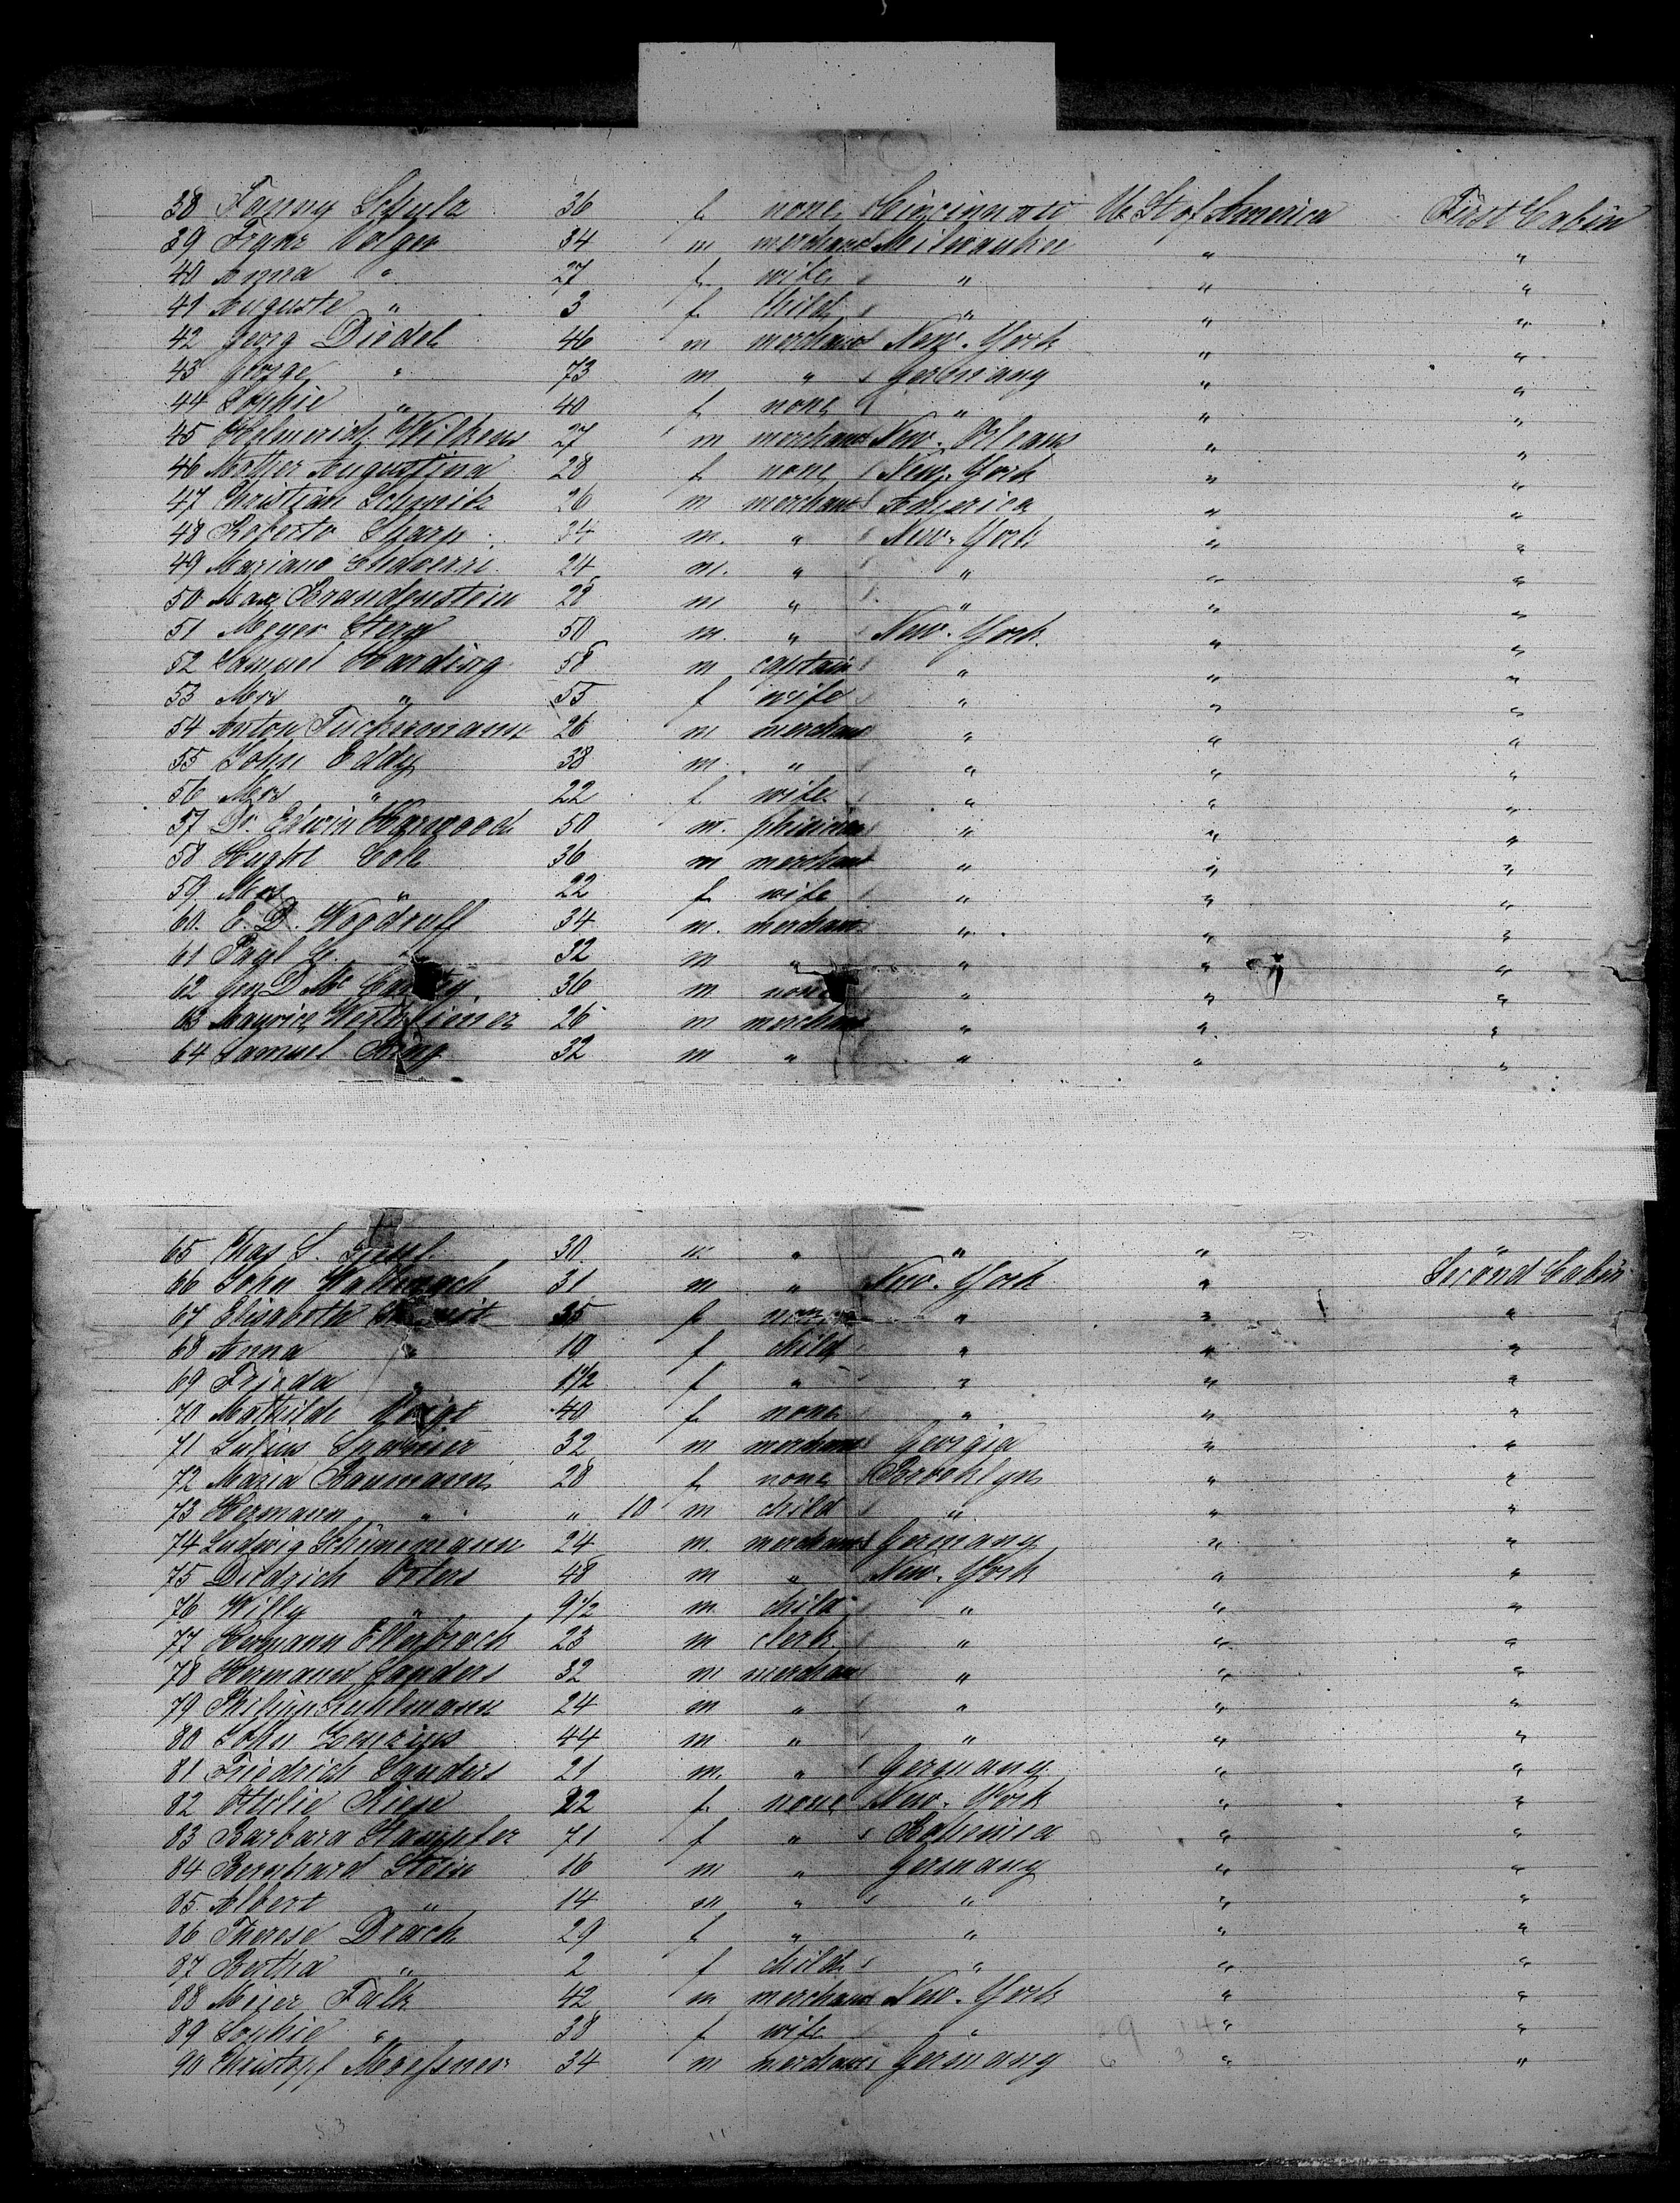 38 Fanny Schulz 36 f none Cincinnati U. St of America First Cabin
39 Franz Volger 34 m merchant Milwaukee " "
40 Anna " 27 f wife " " "
41 Auguste " 3 f child " " "
42 Georg Diedel 46 m merchant New-York " "
43 " 73 m " Germany " "
44 Sophie " 40 f none " " "
45 Helmerich Wilkens 27 m merchant New-Orleans " "
46 Augustina 28 f none New-York " "
47 Christian Schmitz 26 m merchant America " "
48 Roberto Sharp 34 m. " New-York " "
49 Mariano 24 m. " " " "
50 Max Brandenstein 28 m " " " "
51 Meyer Stern 50 m. " New-York " "
52 Samuel Harding 58 m captain " " "
53 Mrs " 55 f wife " " "
54 Anton Tuchermann 26 m merchant " " "
55 John Eddy 38 m. " " " "
56 Mrs " 22 f wife " " "
57 Dr. Edwin Harwood 50 m. " " "
58 Hught Cole 36 m merchant " " "
59 Mrs " 22 f wife " " "
60. E. D. Woodruff 34 m. merchant " " "
61 Paul " 32 m " " " "
62 Gen D Mc 36 m none " " "
63 Maurice 26 m merchant " " "
64 Samuel King 32 m " " " "
65 Chas S. 30 m " " " "
66 John 31 m " New-York " Second Cabin
67 Elisabeth 35 f " " "
68 Anna " 10 f child " " "
69 Frieda " 1 1/2 f " " " "
70 Mathilde Voigt 40 f none " " "
71 Julius 32 m merchant Georgia " "
72 Maria Baumann 28 f none Brooklyn " "
73 Hermann " " 10 m child " " "
74 Ludwig Schünemann 24 m merchant Germany " "
75 Diedrich Osters 48 m " New-York " "
76 Willy " 9 1/2 m child " " "
77 Hermann Ellerbrock 23 m clerk " " "
78 Hermann Sanders 32 m merchant " " "
79 Philipp Kuhlmann 24 m " " " "
80 John 44 m " " " "
81 Friedrich Sanders 21 m. " Germany " "
82 Ottilie Riese 22 f none New-York " "
83 Barbara Stampfer 71 f " Bohemia " "
84 Bernhard Stein 16 m " Germany " "
85. Albert " 14 m " " " "
86 Therese Drach 29 f " " " "
87 Bertha " 2 f child " " "
88 Meier Falk 42 m merchant New-York " "
89 Sophie " 38 f wife " " "
90 Christopf Moessner 34 m merchant Germany " "